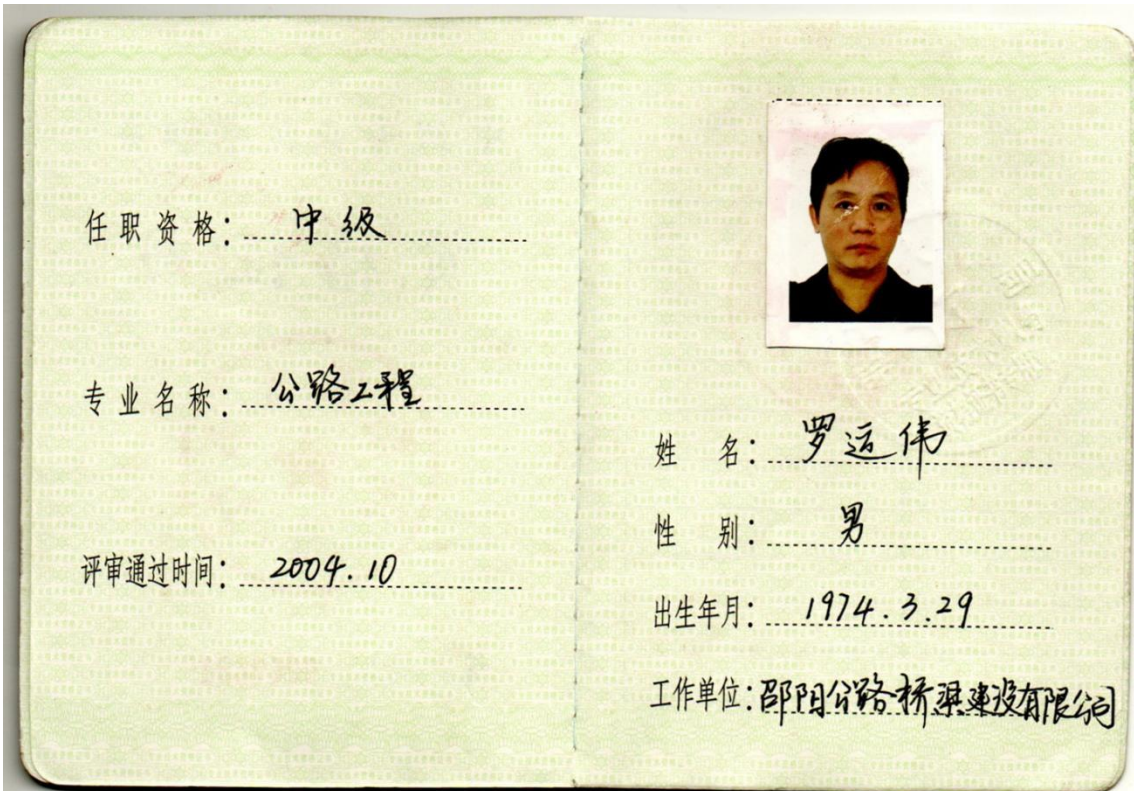 任职资格：中级
专业名称：公路工程
评审通过时间：2004.10
姓名：罗运伟
性别：男
出生年月：1974.3.29
工作单位：邵阳公路桥梁建设有限公司